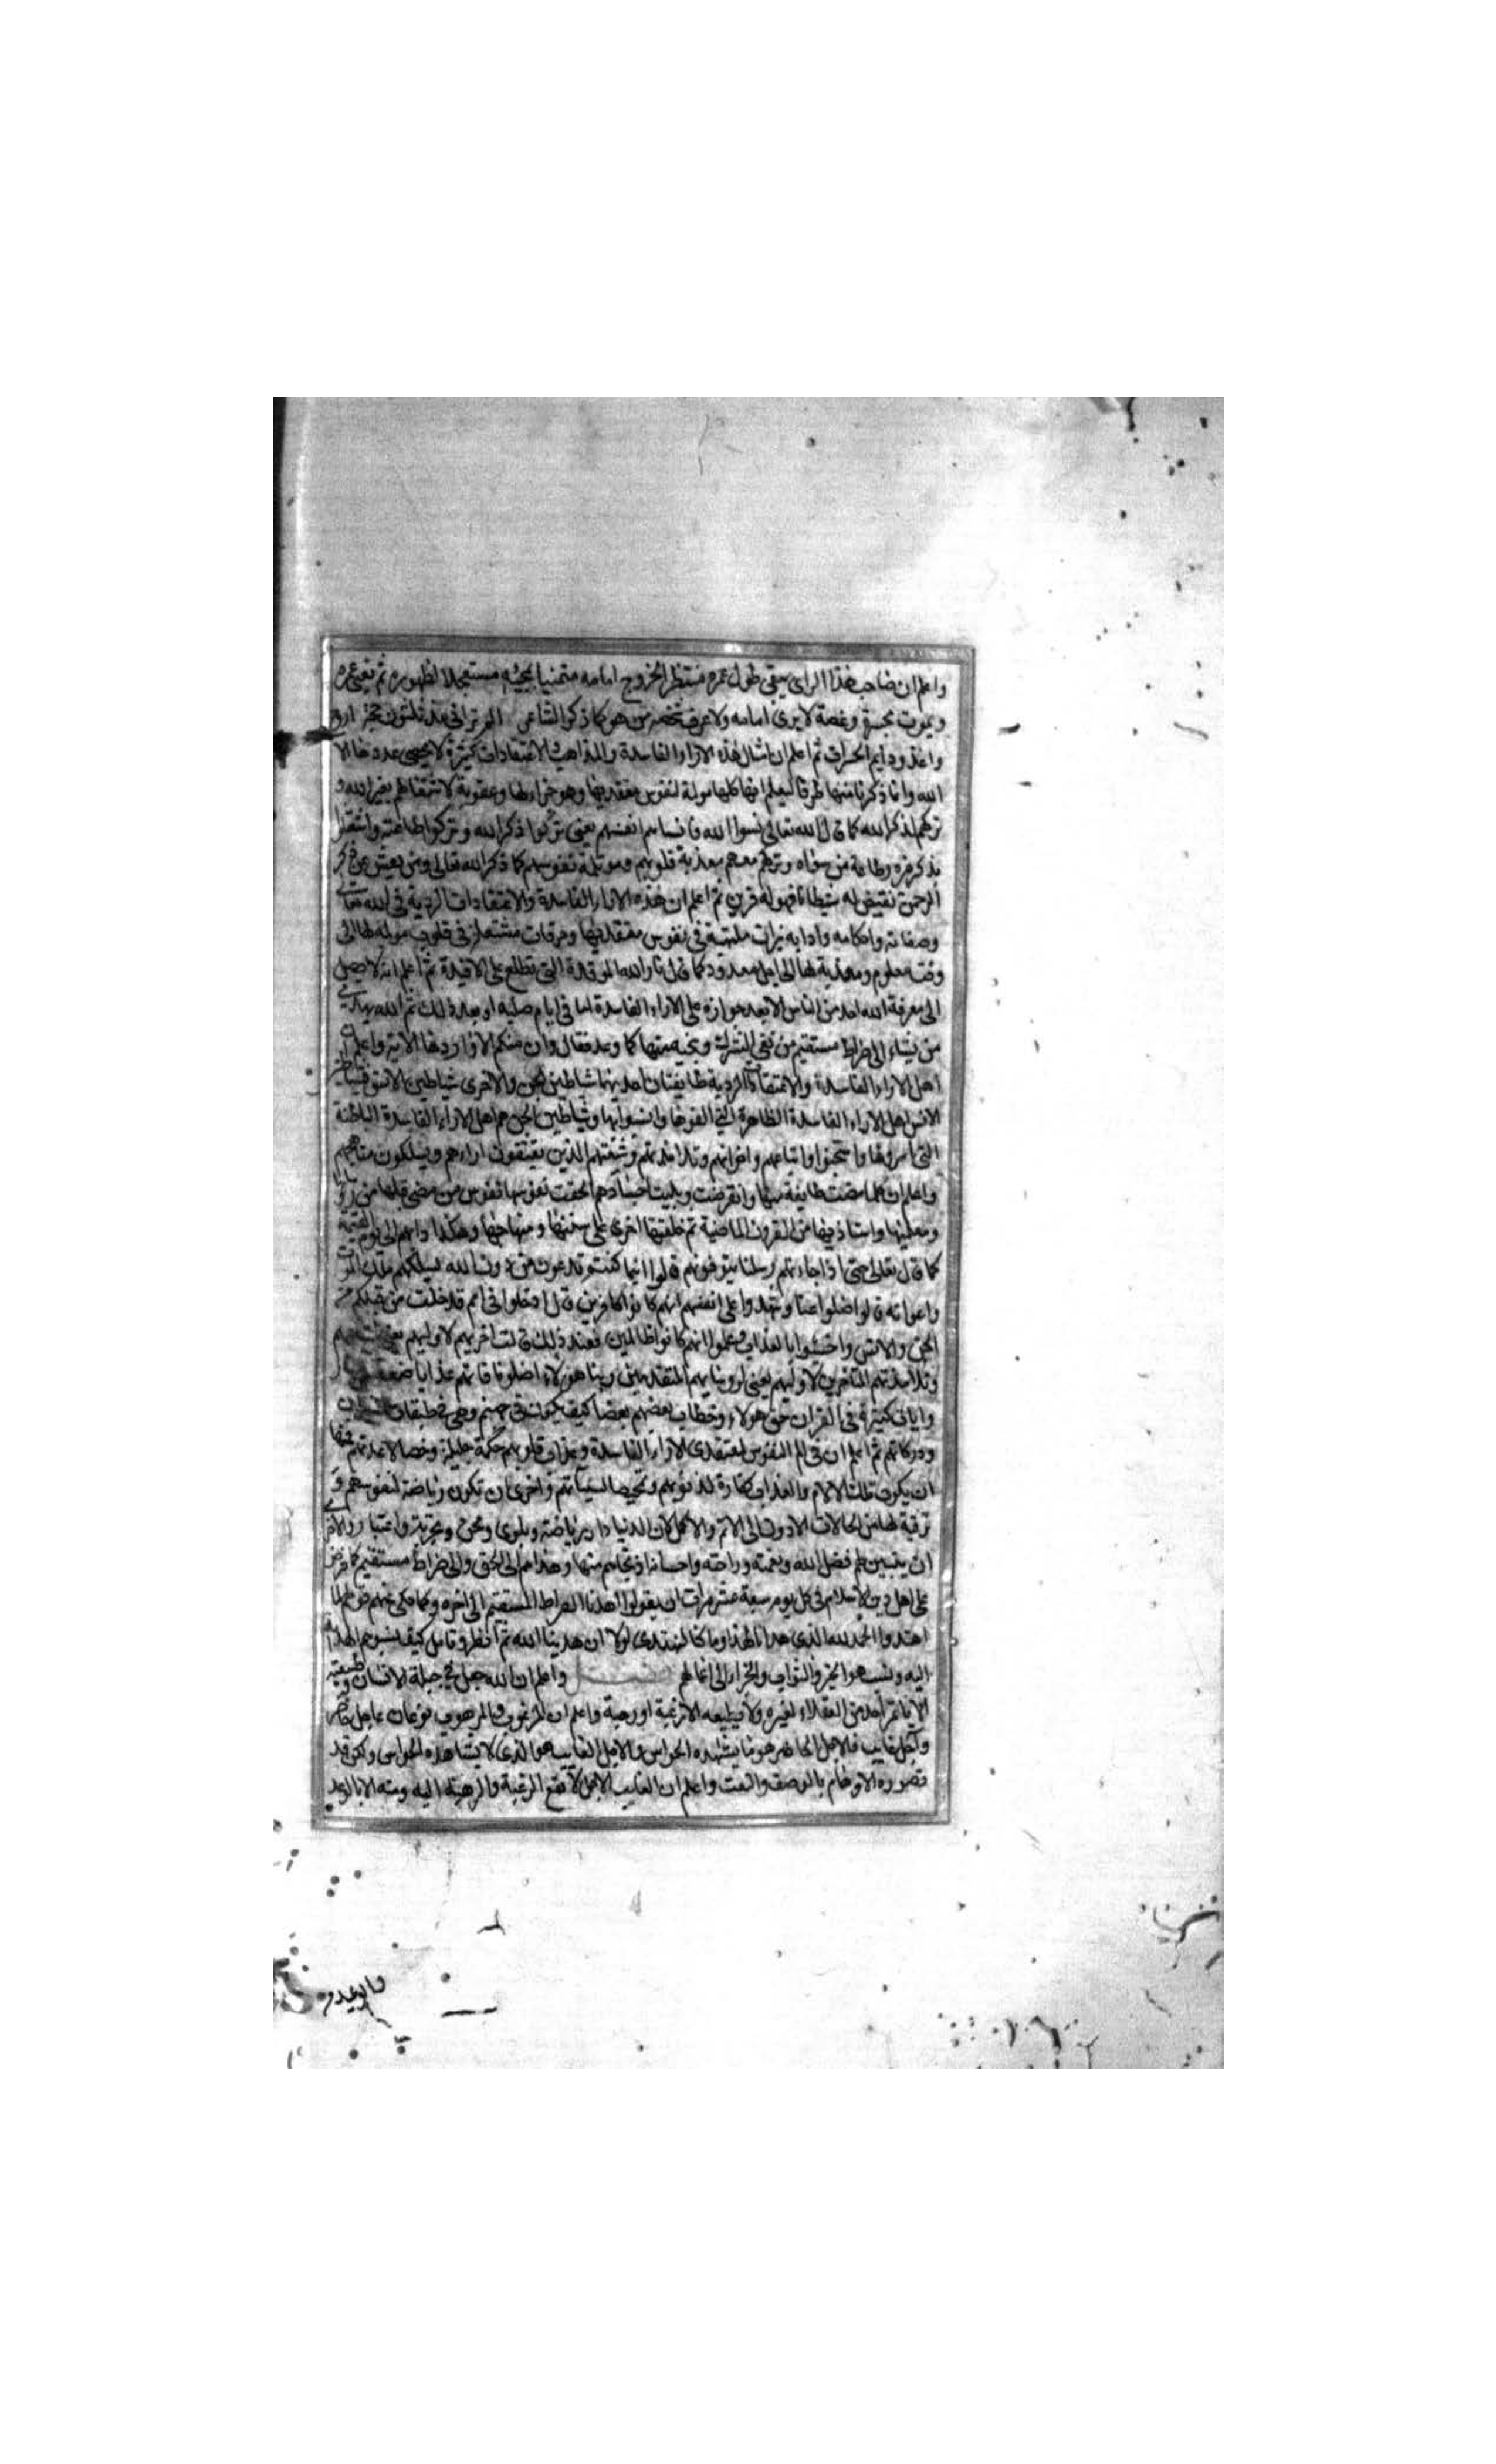 واعلم ان صاحب هذا الراى يبقى طول عمره منتظرا لخروج امامه متمنيا لمجيئه مستعجلا لظهوره ثم يفنى عمره
ويموت بحسرة وغصة لا يرى امامه ولا يعرف شخصه من هو كما ذكر الشاعر الم تر انى منذ ثلثون حجة اروح
واغدو دايم الحسرات ثم اعلم ان امثال هذه الاراء الفاسدة والمذاهب والاعتقادات كثيرة لا يحصى عددها الا
الله وانما ذكرنا منها طرفا ليعلم انها كلها مولمة لنفوس معتقديها وهو جزاء لها وعقوبة لاشتغالهم بغير الله و
تركهم لذكر الله كما قال الله تعالى نسوا الله فانساهم انفسهم يعنى تركوا ذكر الله وتركوا طاعته واشتغلوا
بذكر غيره وطاعة من سواه وتركهم معهم معذبة قلوبهم ومولمة نفوسهم كما ذكر الله تعالى ومن يعش عن ذكر
الرحمن نقيض له شيطانا فهو له قرين ثم اعلم ان هذه الاراء الفاسدة والاعتقادات الردية فى الله تعالى
وصفاته واحكامه وادابه نيرات ملتهبة فى نفوس معتقديها وحرقات مشتعلة فى قلوب مولمة لها الى
وقت معلوم ومعذبة لها الى اجل معدود كما قال نار الله الموقدة التى تطلع على الافيدة ثم اعلم انه لا يصل
الى معرفة الله احد من الناس الا بعد جوازه على الاراء الفاسدة اما فى ايام صباه او بعد ذلك ثم الله يهدى
من يشاء الى صراط مستقيم من نفى الشرك وينجيه منها كما وعد فقال وان منكم الا واردها الاية واعلم ان
اهل الاراء الفاسدة والاعتقادات الردية طايفتان احديهما شياطين الجن والاخرى شياطين الانس فشياطين
الانس اهل الاراء الفاسدة الظاهرة التى الفوها وانسوا بها وشياطين الجن هم اهل الاراء الفاسدة الباطنة
التى اسروها واتباعهم واخوانهم وتلامذتهم وشيعتهم الذين يعتقدون اراءهم ويسلكون منهاجهم
واعلم ان كلما مضت طايفة منها وانقرضت وبليت اجسادهم الحقت نفوسها نفوس من مضى قبلها من
ومعلميها واستاذيها من القرون الماضية ثم خلفتها اخرى على سنتها ومنهاجها وهكذا دابهم الى يوم القيمة
كما قال تعالى حتى اذا جاءتهم رسلنا يتوفونهم قالوا اينما كنتم تدعون من دون الله ملك الموت
واعوانه قالوا ضلوا عنا وشهدوا على انفسهم انهم كانوا كافرين قال ادخلوا فى امم قد خلت من قبلكم من
الجن والانس بالعذاب وعلموا انهم كانوا ظالمين فعند ذلك قالت اخريهم لاوليهم يعنى
وتلامذتهم المتاخرين لاوليهم يعنى لرؤسايهم المتقدمين ربنا هولاء اضلونا فاتهم عذابا ضعفا
وايات كثيرة فى القران حق هولاء وخطاب بعضهم بعضا كيف يكون فى جهنم وهى فى طبقات النيران
ودركاتهم ثم اعلم ان فى الم النفوس لمعتقدى الاراء الفاسدة وعذاب قلوبهم حكمة جليلة
ان يكون تلك الالام والعذاب كفارة لذنوبهم وتمحيصا لسيئاتهم واخرى ان تكون رياضة لنفوسهم و
ترقية لها من الحالات الادون الى الاتم والاكمل لان الدنيا دار رياضة وبلوى ومحن وتجربة واعتبار
ان يتبين لهم فضل الله ونعمته وراحته واحسانه اذ نجاهم منها وهداهم الى الحق والى صراط مستقيم كما فرض
على اهل دين الاسلام فى كل يوم سبعة عشر مرات ان يقولوا اهدنا الصراط المستقيم الى اخره وكما حكى عنهم قولهم لما
اهتدوا الحمد لله الذى هدانا لهذا وما كنا لنهتدى لولا ان هدينا الله ثم انظر وتامل كيف نسبوهم الهداية
اليه ونسب هو الخير والثواب والجزاء الى اعمالهم فصل واعلم ان الله جعل فى جبلة الانسان وطبيعته
الا ياتمر احد من العقلاء لغيره ولا يطيعه الا رغبة او رهبة واعلم ان المرغوب والمرهوب نوعان عاجل حاضر
واجل غايب فالعاجل الحاضر هو ما يشاهده الحواس والاجل الغايب هو الذى لا يشاهده الحواس ولكن قد
تصوره الاوهام بالوصف والنعت واعلم ان الغايب الاجل لا تقع الرغبة والرهبة اليه ومنه الا بالوعد
والوعيد